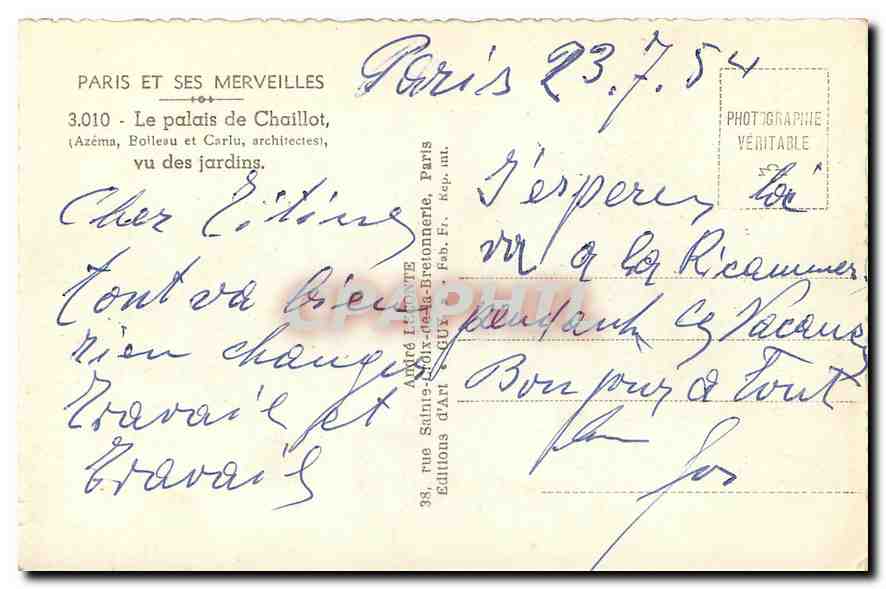 PARIS ET SES MERVEILLES
3.010 - Le palais de Chaillot,
(Azéma, Boileau et Carlu, architectes),
vu des jardins.
Paris 23.7.54
PHOTOGRAPHIE
VÉRITABLE
Cher
tout va bien
rien changer
travail et
travail
André LECONTE
38, rue Sainte-Croix-de-la-Bretonnerie, Paris
Editions d'Art "GUY" - Fab. Fr. Rep. int.
J'espere
va a la
pendant Vacances
Bonjour a tout
CPAPHIL